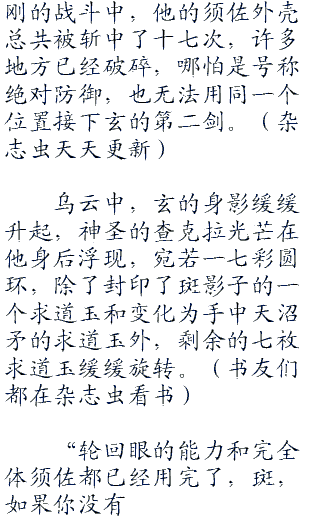 刚的战斗中，他的须佐外壳
总共被斩中了十七次，许多
地方已经破碎，哪怕是号称
绝对防御，也无法用同一个
位置接下玄的第二剑。（杂
志虫天天更新）
乌云中，玄的身影缓缓
升起，神圣的查克拉光芒在
他身后浮现，宛若一七彩圆
环，除了封印了斑影子的一
个求道玉和变化为手中天沼
矛的求道玉外，剩余的七枚
求道玉缓缓旋转。（书友们
都在杂志虫看书）
“轮回眼的能力和完全
体须佐都已经用完了，斑，
如果你没有